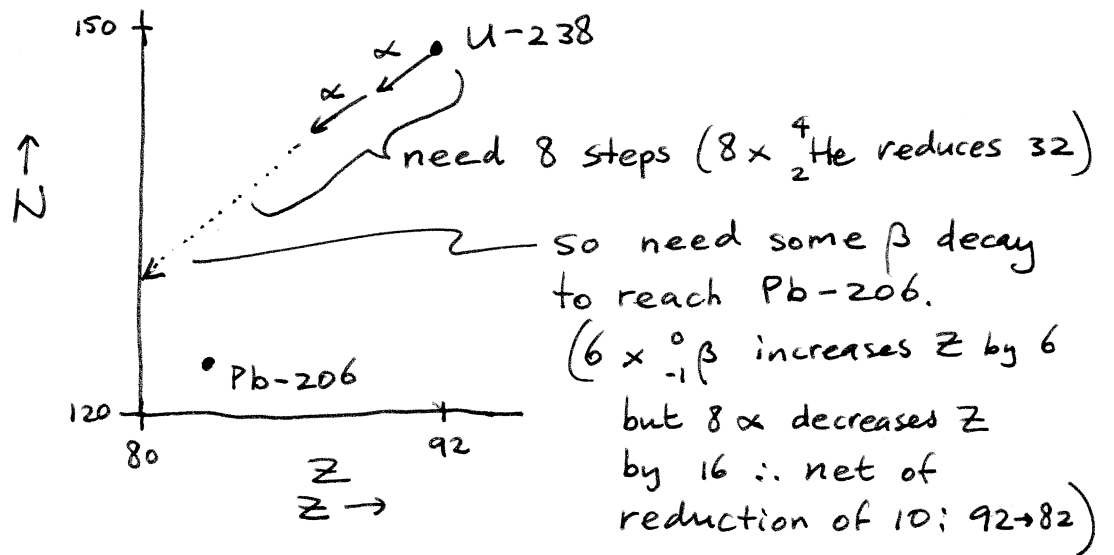 150
α
U-238
α
↑
N
need 8 steps (8 × ⁴₂He reduces 32)
so need some β decay
to reach Pb-206.
(6 × ⁰₋₁β increases Z by 6
but 8 α decreases Z
by 16 ∴ net of
reduction of 10: 92→82)
Pb-206
120
80
92
Z
Z →